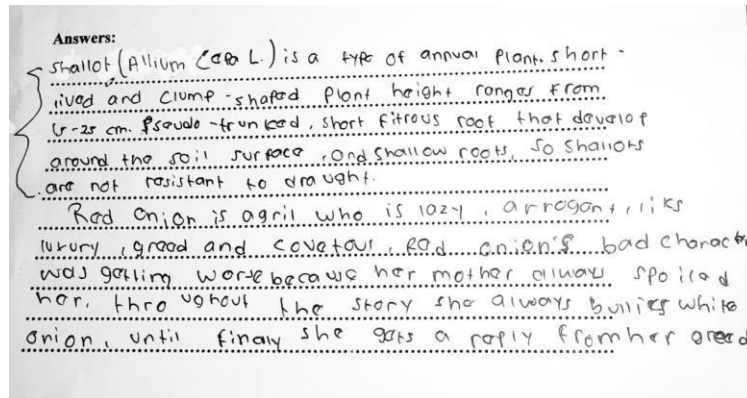 Answers:
Shallot (Allium Cepa L.) is a type of annual Plant. Short-
lived and clump-shaped Plant height ranges from
15-25 cm. Pseudo-trunked, short fitrous root that develop
around the soil surface, and shallow roots, so shallots
are not resistant to draught.
Red Onion is agril who is lozy, arrogant, liks
lurury, greed and covetour, Red onion's bad charactr
was getting worse because her mother always spoiled
her, throughout the story she always bullies white
onion, until finaly she gets a reply from her greed